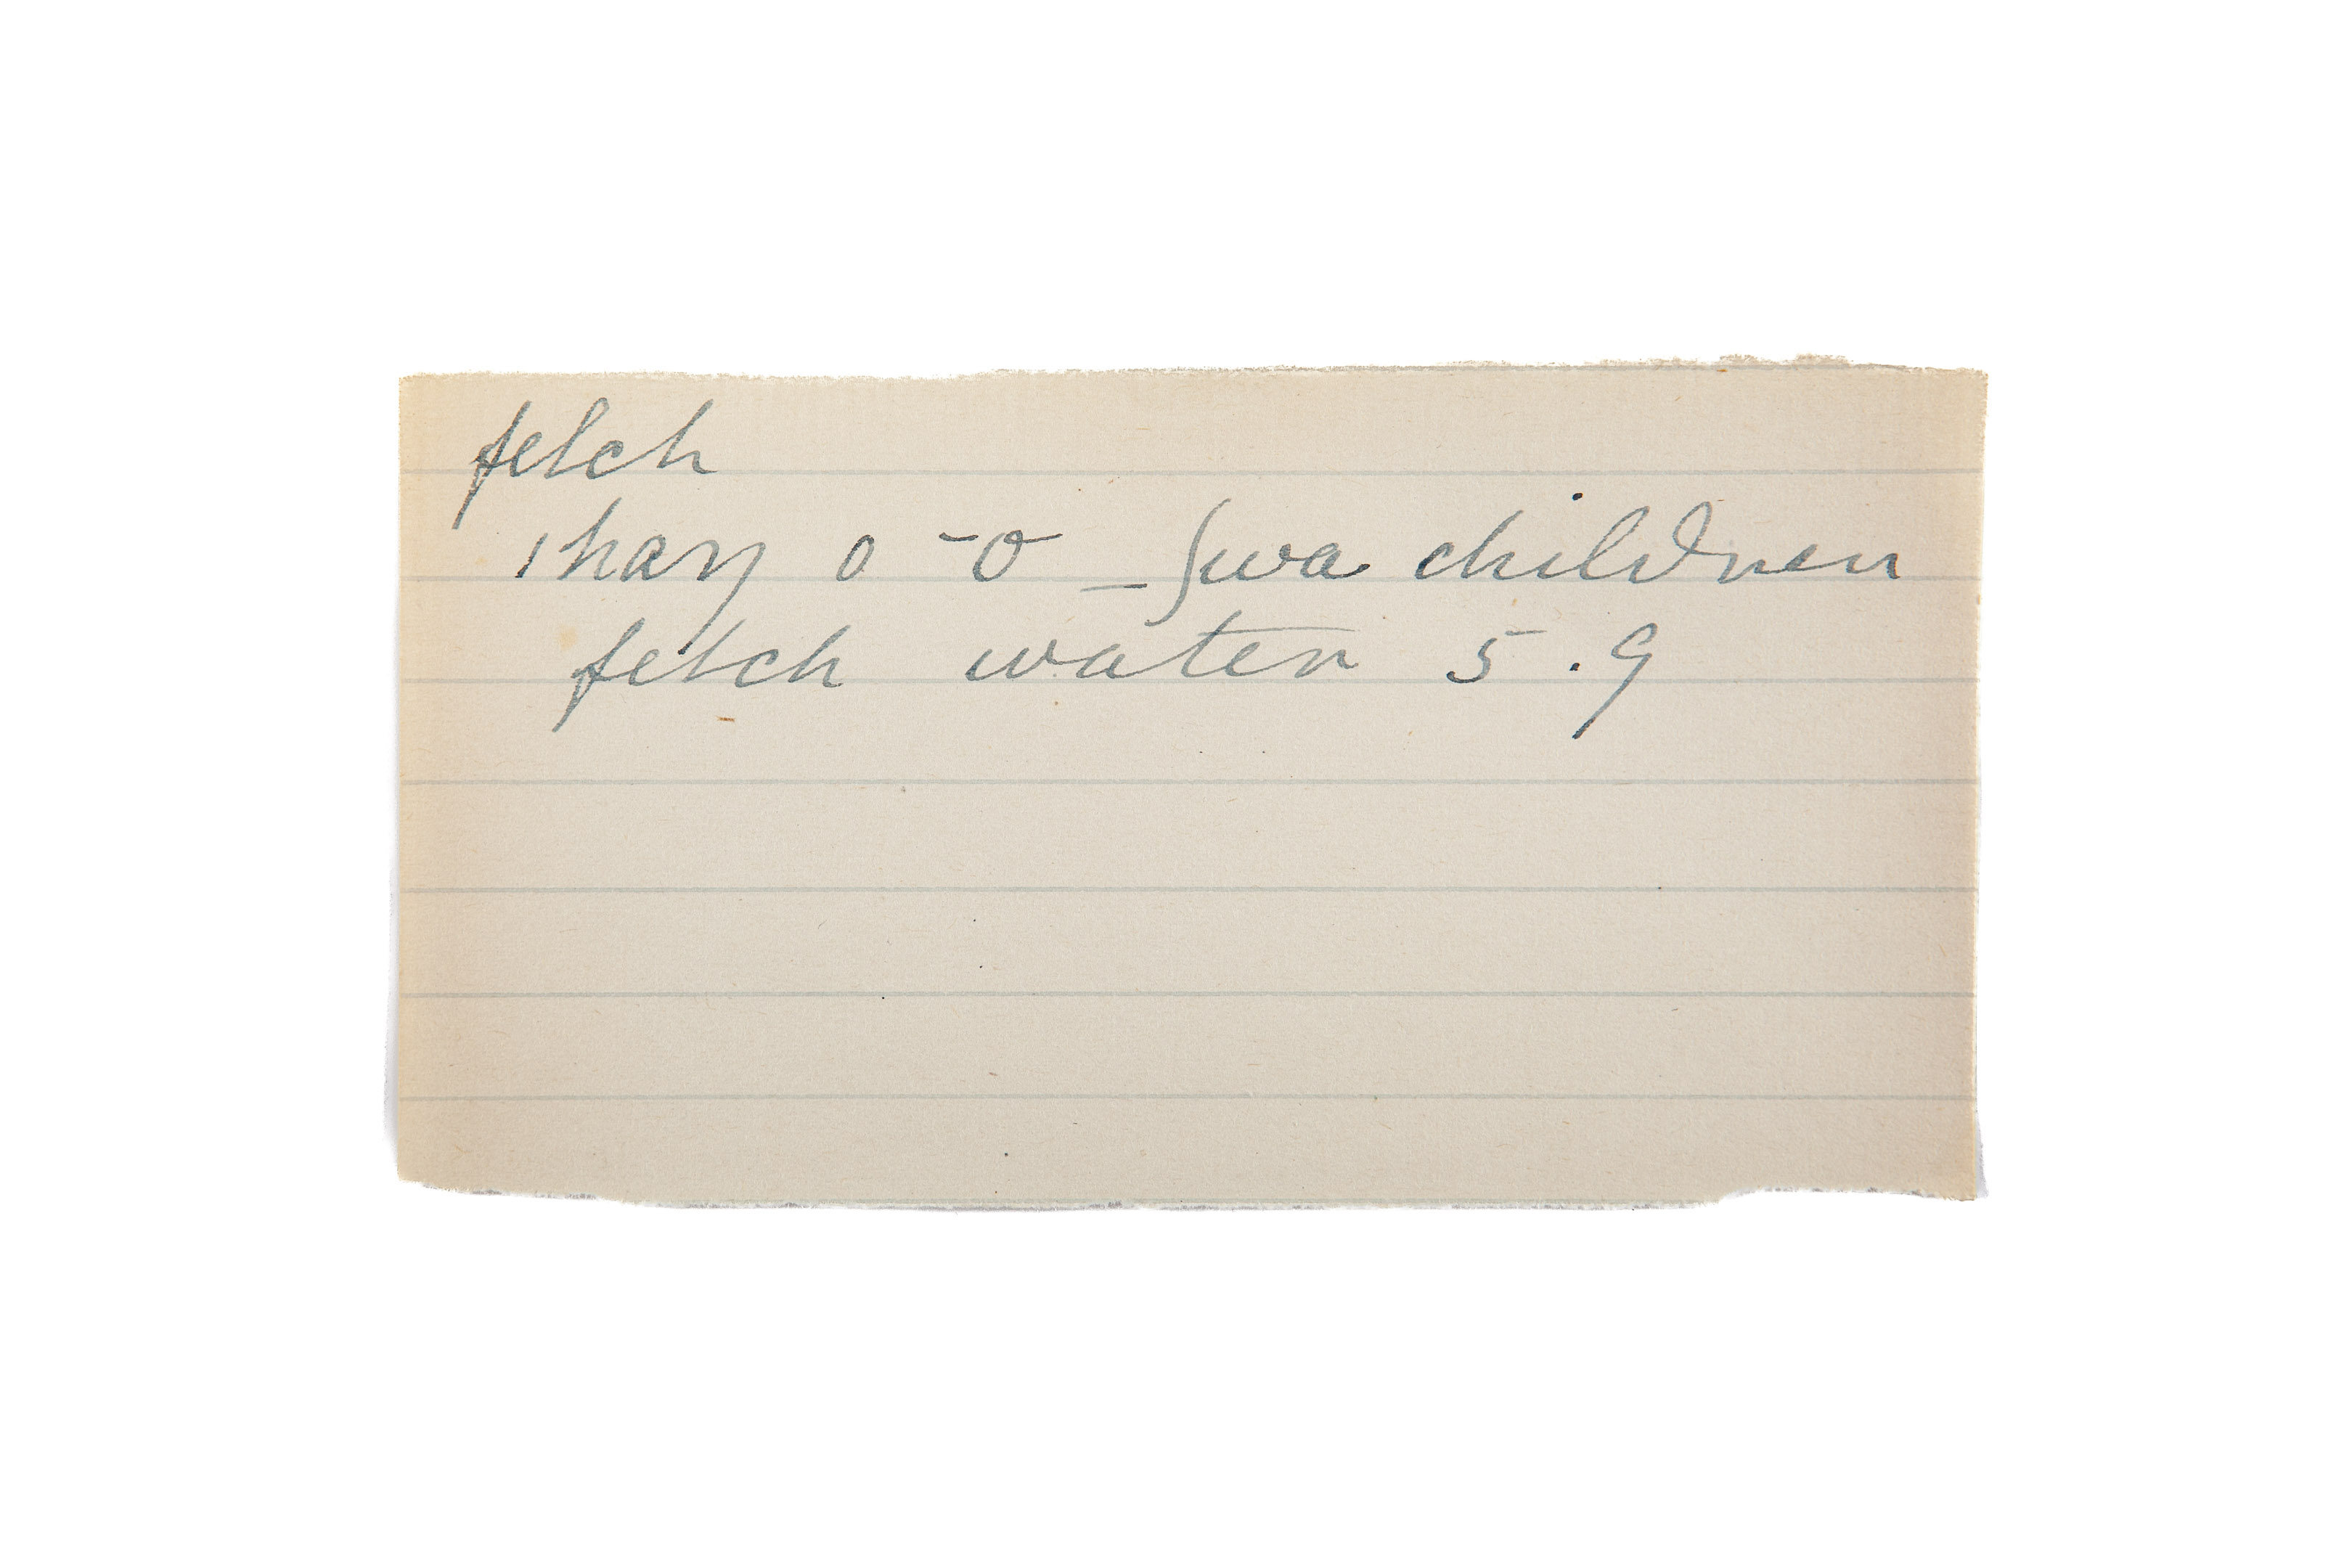 fetch
ǀhaŋ o ‾o _ ʃwa children
fetch water 5.9